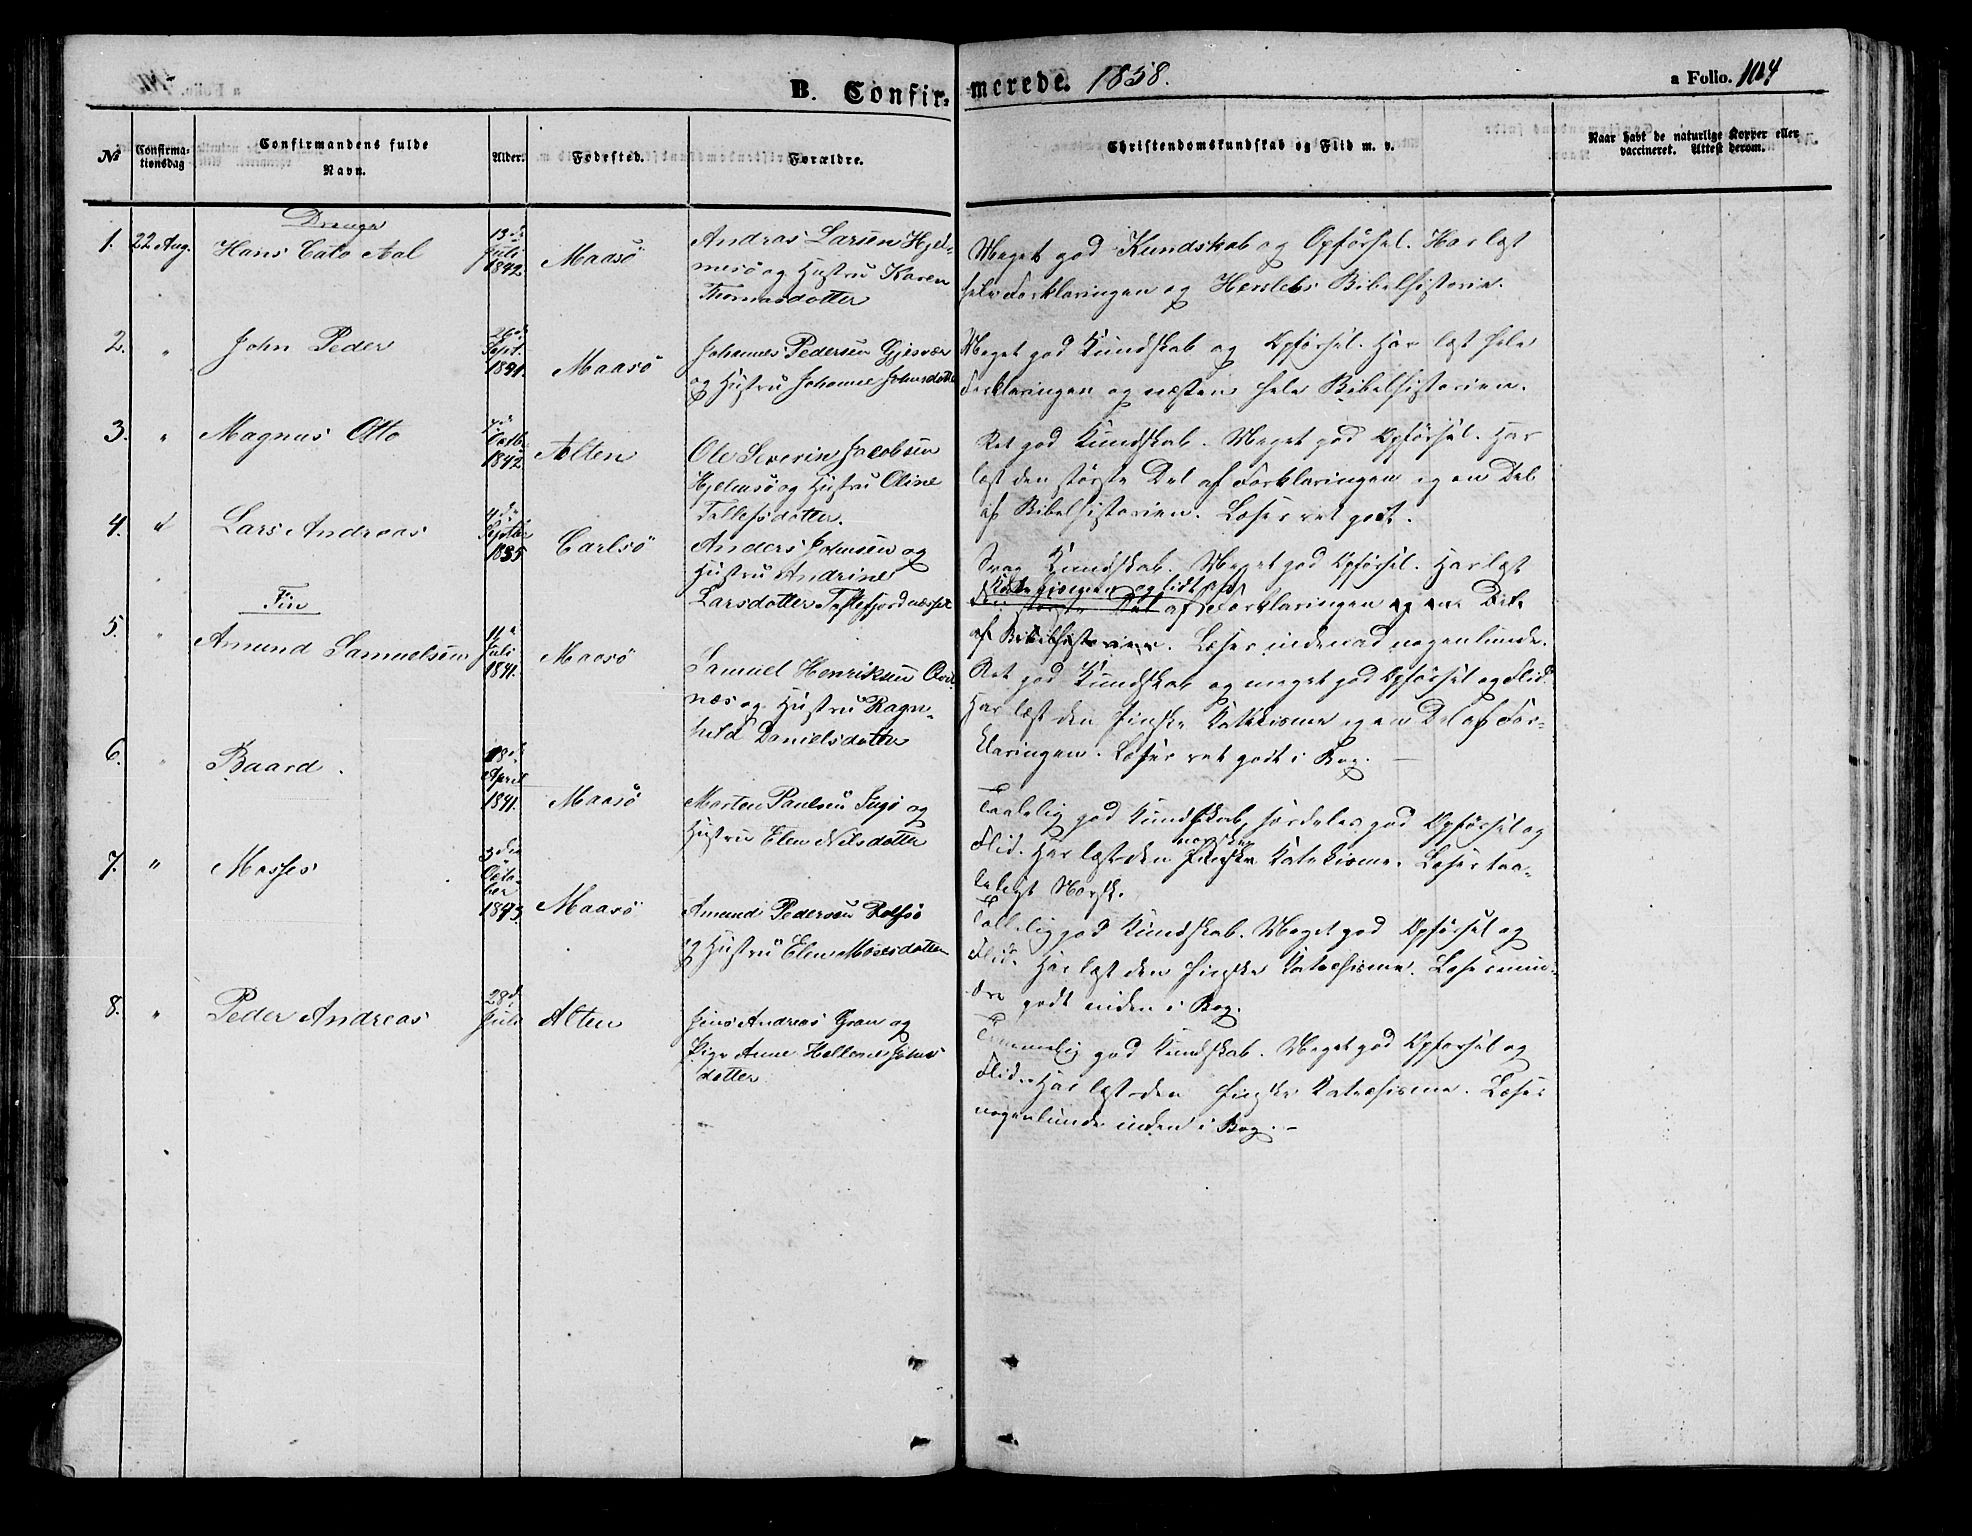 B. Confirmerede. 1858.
a Folio. 104
No
Confirma-
tionsdag
Confirmandens fulde
Navn.
Alder.
Fødested.
Forældre.
Christendomskundskab og Flid m. v.
Naar havt de naturlige Kopper eller
vaccineret. Attest derom.
Drenge
1. 22 Aug. Hans Cato Aal
13de
Juli
1842.
Maasö
Andreas Larsen Hjel-
mesö og Hustru Karen
Thomasdatter
Meget god Kundskab og Opførsel. Har læst
hele Forklaringen og Herslebs Bibelhistorie.
2. " John Peder
26de
Sept.
1841.
Maasö
Johannes Pedersen Gjesvær
og Hustru Johanne Johnsdatter
Meget god Kundskab og Opførsel. Har læst hele
Forklaringen og næsten hele Bibelhistorien.
3. " Magnus Otto
Octb.
1842.
Alten
Ole Severin Jacobsen
Hjelmsö og Hustru Oline
Tellefsdatter.
Ret god Kundskab. Meget god Opførsel. Har
læst den største Del af Forklaringen og en Del
af Bibelhistorien. Læser ret godt.
4. " Lars Andreas
4de
Septbr
1835
Carlsö
Anders Johnsen og
Hustru Andrine
Larsdatter Tuftefjordnæsset
Svag Kundskab. Meget god Opførsel. Har læst
Katekismen og lidt af
den største Del af Forklaringen og en Del
af Bibelhistorien. Læser indenad nogenlunde.
Fin
5. " Amund Samuelsen
11te
Juli
1841.
Maasö
Samuel Henriksen Qval-
næs og Hustru Ragn-
hild Danielsdatter
Ret god Kundskab og meget god Opførsel og Flid.
Har læst den finske Katekisme og en Del af For-
klaringen. Læser ret godt i Bog. —
6. " Baard.
18de
April
1841.
Maasö
Morten Paulsen Ingö og
Hustru Elen Nilsdatter
Taalelig god Kundskab, særdeles god Opførsel og
norske
Flid. Har læst den finske Katekisme. Læser taa-
leligt Norsk.
7. " Mosses
3die
Octo-
ber
1843.
Maasö
Amund Pedersen Rolfsö
og Hustru Elen Mosesdatter
Taalelig god Kundskab. Meget god Opførsel og
Flid. Har læst den finske Katekisme. Læser min-
dre godt inden i Bog.
8. " Peder Andreas
28de
Juli
Alten
Jens Andreas Gran og
Pige Anne Hellene Johns
datter
Temmelig god Kundskab. Meget god Opførsel og
Flid. Har læst den finske Katekisme. Læser
nogenlunde inden i Bog. —